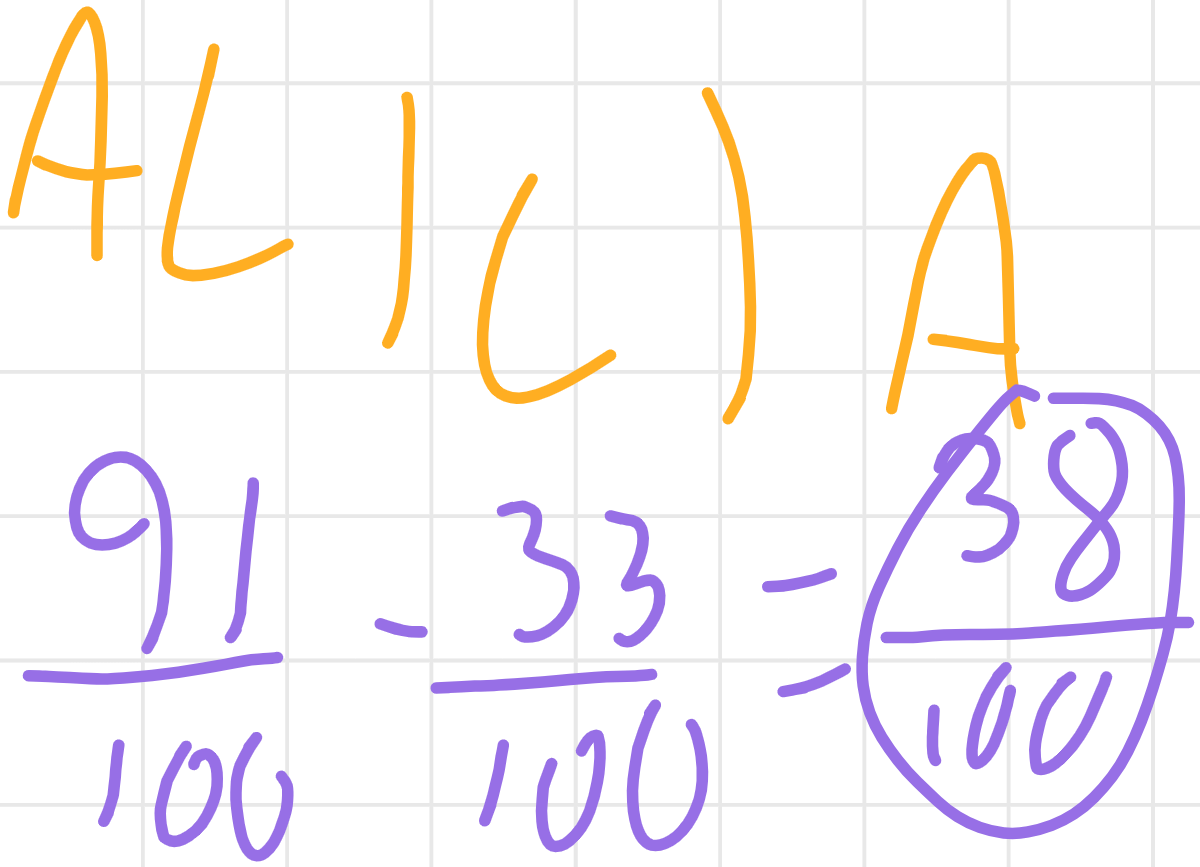 ALICIA
91/100 - 33/100 = 38/100